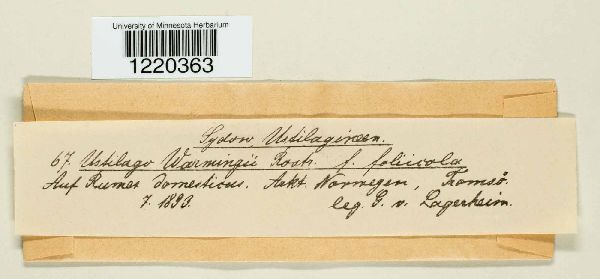 University of Minnesota Herbarium
1220363
Sydow Ustilagineen.
67. Ustilago Warmingii Rostr. f. foliicola
Auf Rumex domesticus. Arkt Norwegen, Tromsö.
7. 1893. leg. G. v. Lagerheim.